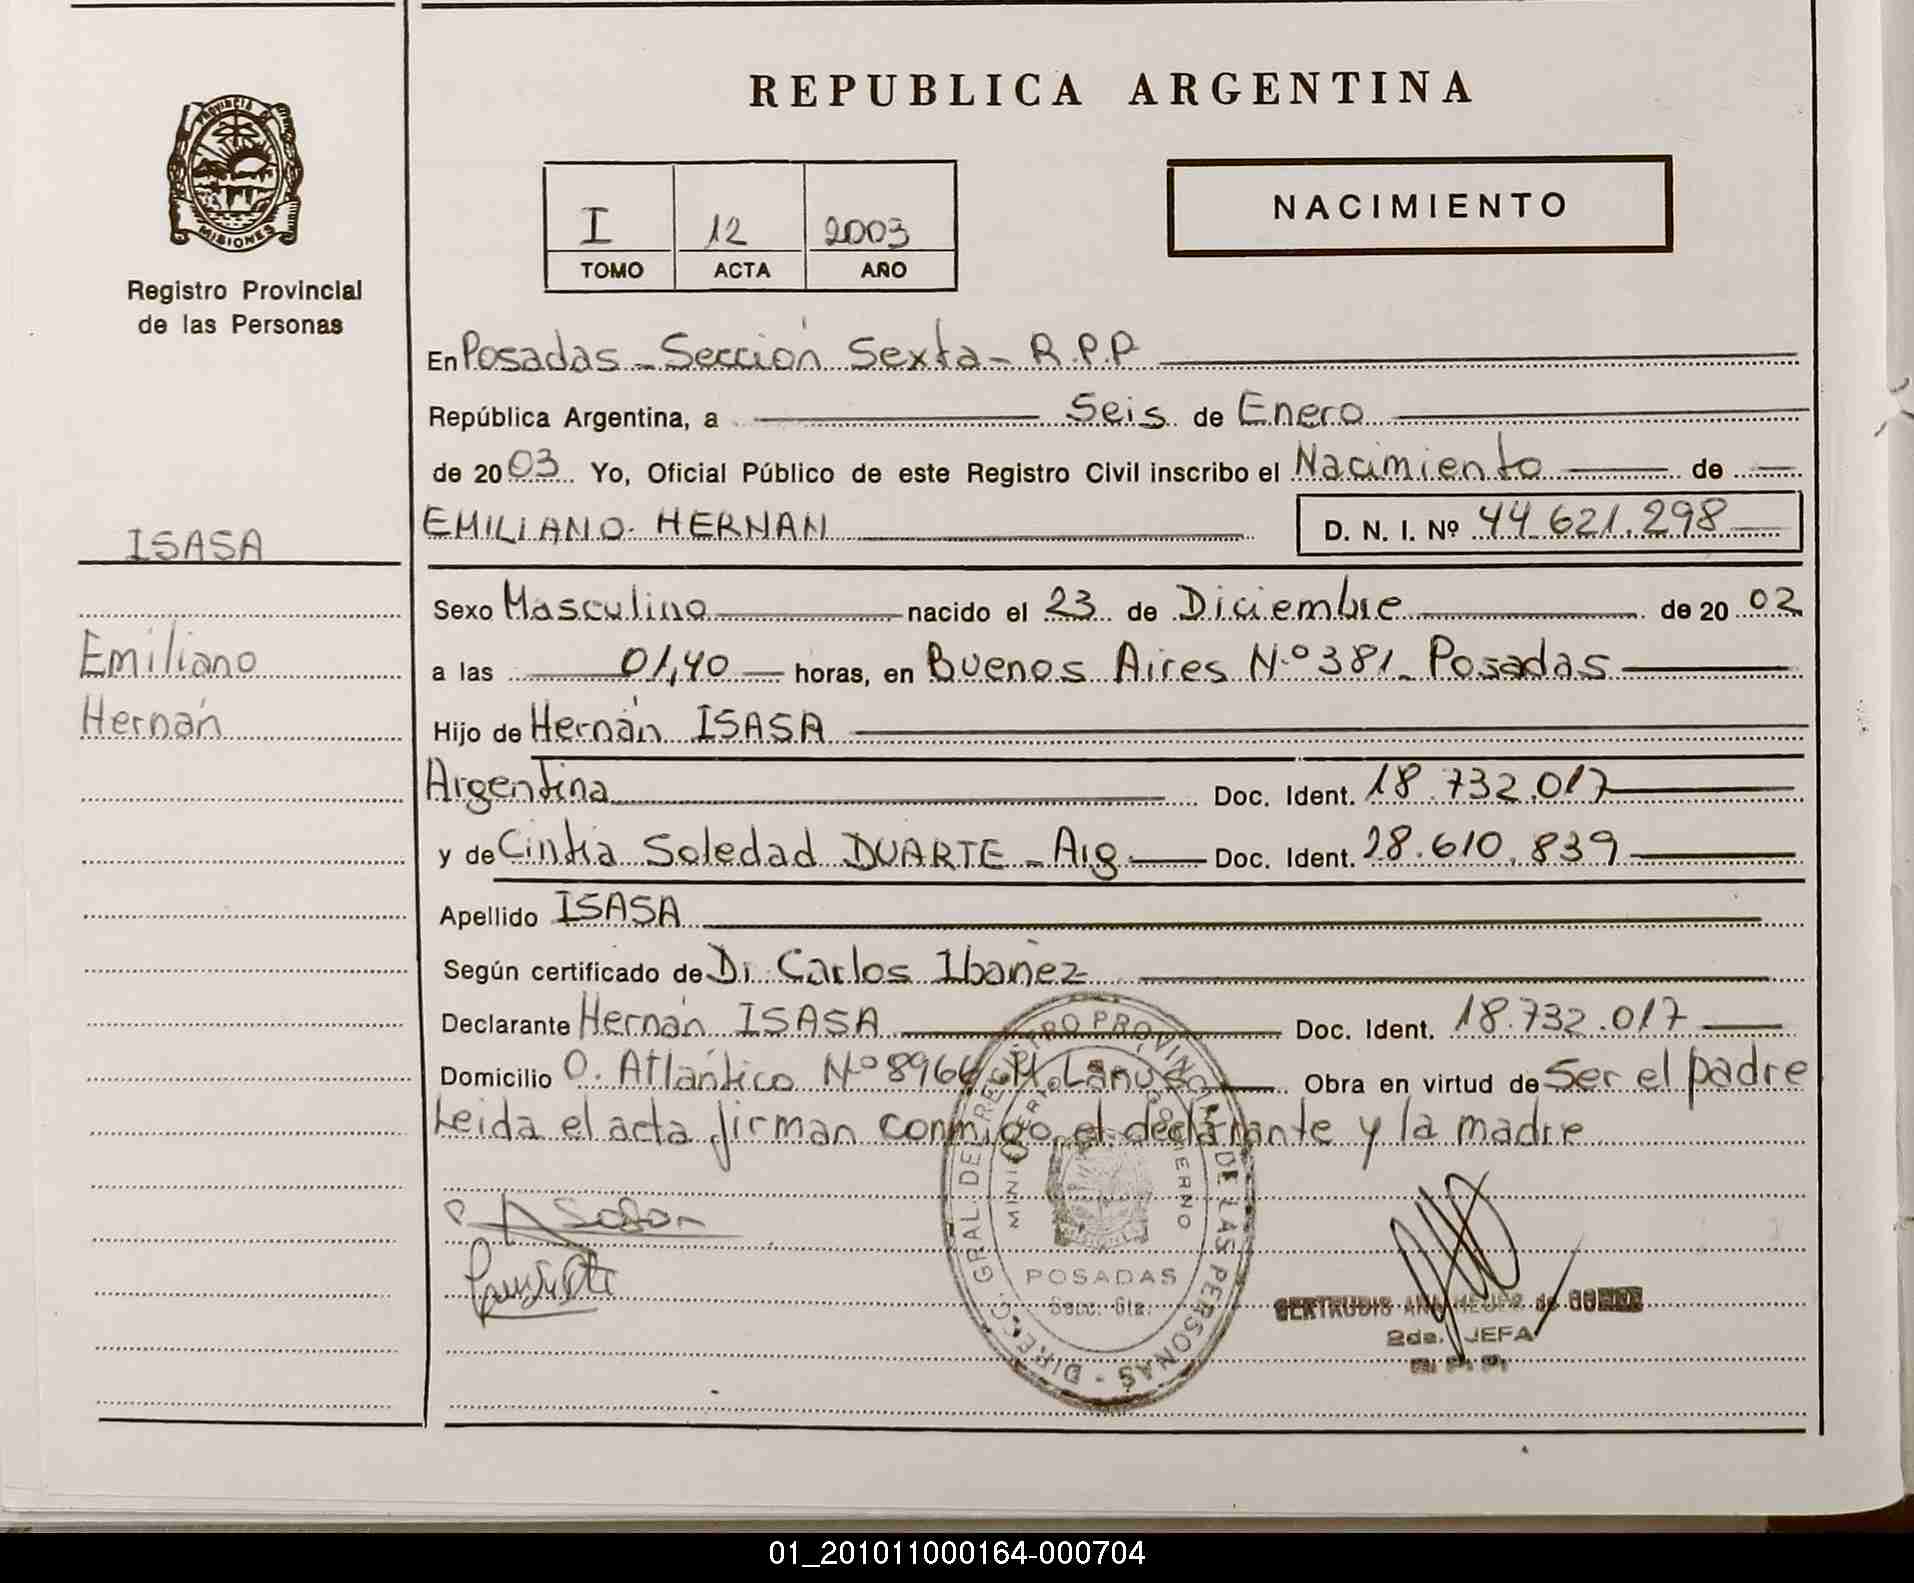 REPUBLICA ARGENTINA
PROVINCIA DE MISIONES
Registro Provincial
de las Personas
I 12 2003
TOMO ACTA AÑO
NACIMIENTO
En Posadas - Sección Sexta - R.P.P
República Argentina, a Seis de Enero
de 2003 Yo, Oficial Público de este Registro Civil inscribo el Nacimiento de
EMILIANO HERNAN D. N. I. Nº 44.621.298
ISASA
Emiliano
Hernán
Sexo Masculino nacido el 23 de Diciembre de 2002
a las 01,40 horas, en Buenos Aires Nº 381 - Posadas
Hijo de Hernán ISASA
Argentina Doc. Ident. 18.732.017
y de Cintia Soledad DUARTE - Arg Doc. Ident. 28.610.839
Apellido ISASA
Según certificado de Dr. Carlos Ibañez
Declarante Hernán ISASA Doc. Ident. 18.732.017
Domicilio O. Atlántico Nº 8966 Obra en virtud de Ser el padre
Leida el acta firman conmigo el declarante y la madre
DIRECC. GRAL. DE REGISTRO PROVINCIAL DE LAS PERSONAS
MINISTERIO GOBIERNO
POSADAS
Secc. 6ta.
GERTRUDIS ANA
2da. JEFA
R. P. P.
01_201011000164-000704